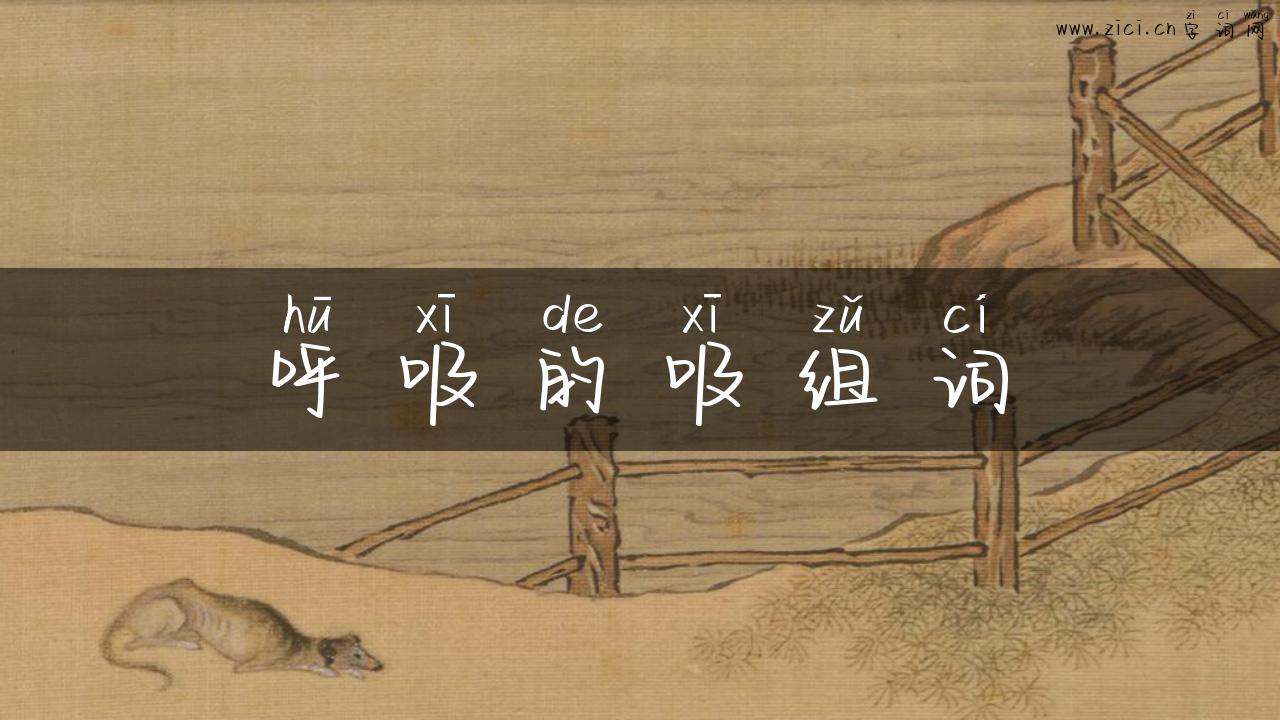 zì cí wǎng
www.zici.cn 字词网
hū xī de xī zǔ cí
呼吸的吸组词